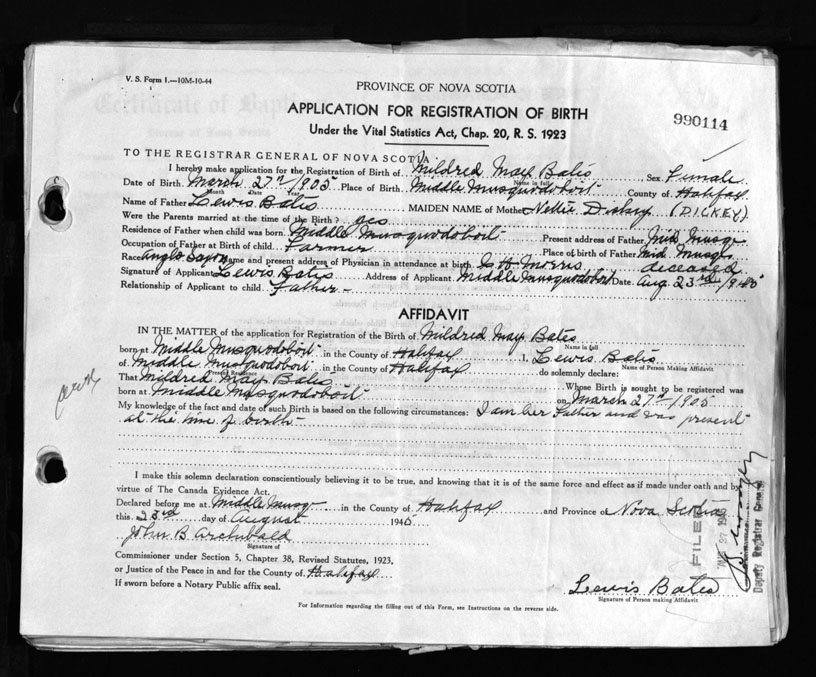 V. S. Form 1.—10M-10-44
PROVINCE OF NOVA SCOTIA
APPLICATION FOR REGISTRATION OF BIRTH
990114
Under the Vital Statistics Act, Chap. 20, R. S. 1923
TO THE REGISTRAR GENERAL OF NOVA SCOTIA:
I hereby make application for the Registration of Birth of Mildred May Bates Sex Female
Name in full
Date of Birth March 27th 1905 Place of Birth Middle Musquodoboit County of Halifax
Month Date Year
Name of Father Lewis Bates MAIDEN NAME of Mother Nettie Dickey (DICKEY)
Were the Parents married at the time of the Birth? yes
Residence of Father when child was born Middle Musquodoboit Present address of Father Mid Musqo
Occupation of Father at Birth of child Farmer Place of birth of Father Mid Musqo
Race Anglo Saxon Name and present address of Physician in attendance at birth Morris deceased
Signature of Applicant Lewis Bates Address of Applicant Middle Musquodoboit Date Aug 23rd
Relationship of Applicant to child Father
AFFIDAVIT
IN THE MATTER of the application for Registration of the Birth of Mildred May Bates
Name in full
born at Middle Musquodoboit in the County of Halifax I, Lewis Bates
Name of Person Making Affidavit
of Middle Musquodoboit in the County of Halifax do solemnly declare:
Present Residence
That Mildred May Bates Whose Birth is sought to be registered was
born at Middle Musquodoboit on March 27th 1905
My knowledge of the fact and date of such Birth is based on the following circumstances: I am her Father and was present
at the time of birth
I make this solemn declaration conscientiously believing it to be true, and knowing that it is of the same force and effect as if made under oath and by
virtue of The Canada Evidence Act.
Declared before me at Middle Musqo in the County of Halifax and Province of Nova Scotia
this 23rd day of August 194
John B Archibald
Signature of
Commissioner under Section 5, Chapter 38, Revised Statutes, 1923,
or Justice of the Peace in and for the County of Halifax
If sworn before a Notary Public affix seal.
Lewis Bates
Signature of Person making Affidavit
For Information regarding the filling out of this Form, see Instructions on the reverse side.
FILED
Deputy Registrar General